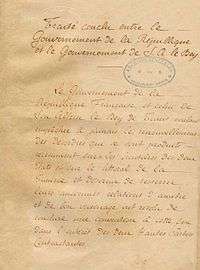 Traité conclu entre le
Gouvernement de la République
et le Gouvernement de S. A. le Bey
Le Gouvernement de la
République Française, et celui de
Son Altesse le Bey de Tunis voulant
empêcher à jamais le renouvellement
des désordres qui se sont produits
récemment sur les frontières des deux
États et sur le littoral de la
Tunisie et désirant de resserrer
leurs anciennes relations d'amitié
et de bon voisinage ont résolu de
conclure une convention à cette fin
dans l'intérêt des deux Hautes Parties
Contractantes.